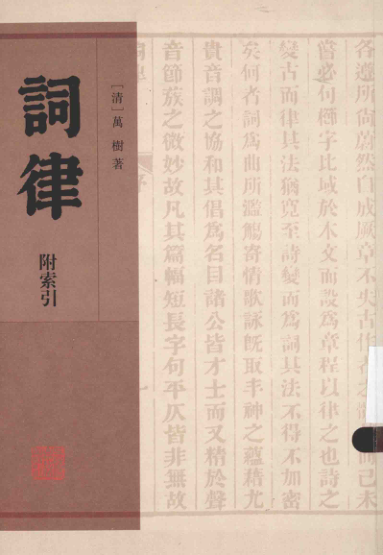 詞律
附索引
［清］萬樹著
各遵所尚蔚然自成厥章不失古作
已未
嘗必句櫛字比域於木文而設為章程以律之也詩之
變古而律其法猶寬至詩變而為詞其法不得不加密
矣何者詞為曲所濫觴寄情歌詠既取丰神之蘊藉尤
貴音調之協和其倡為名目諸公皆才士而又精於聲
音節族之微妙故凡其篇幅短長字句平仄皆非無故